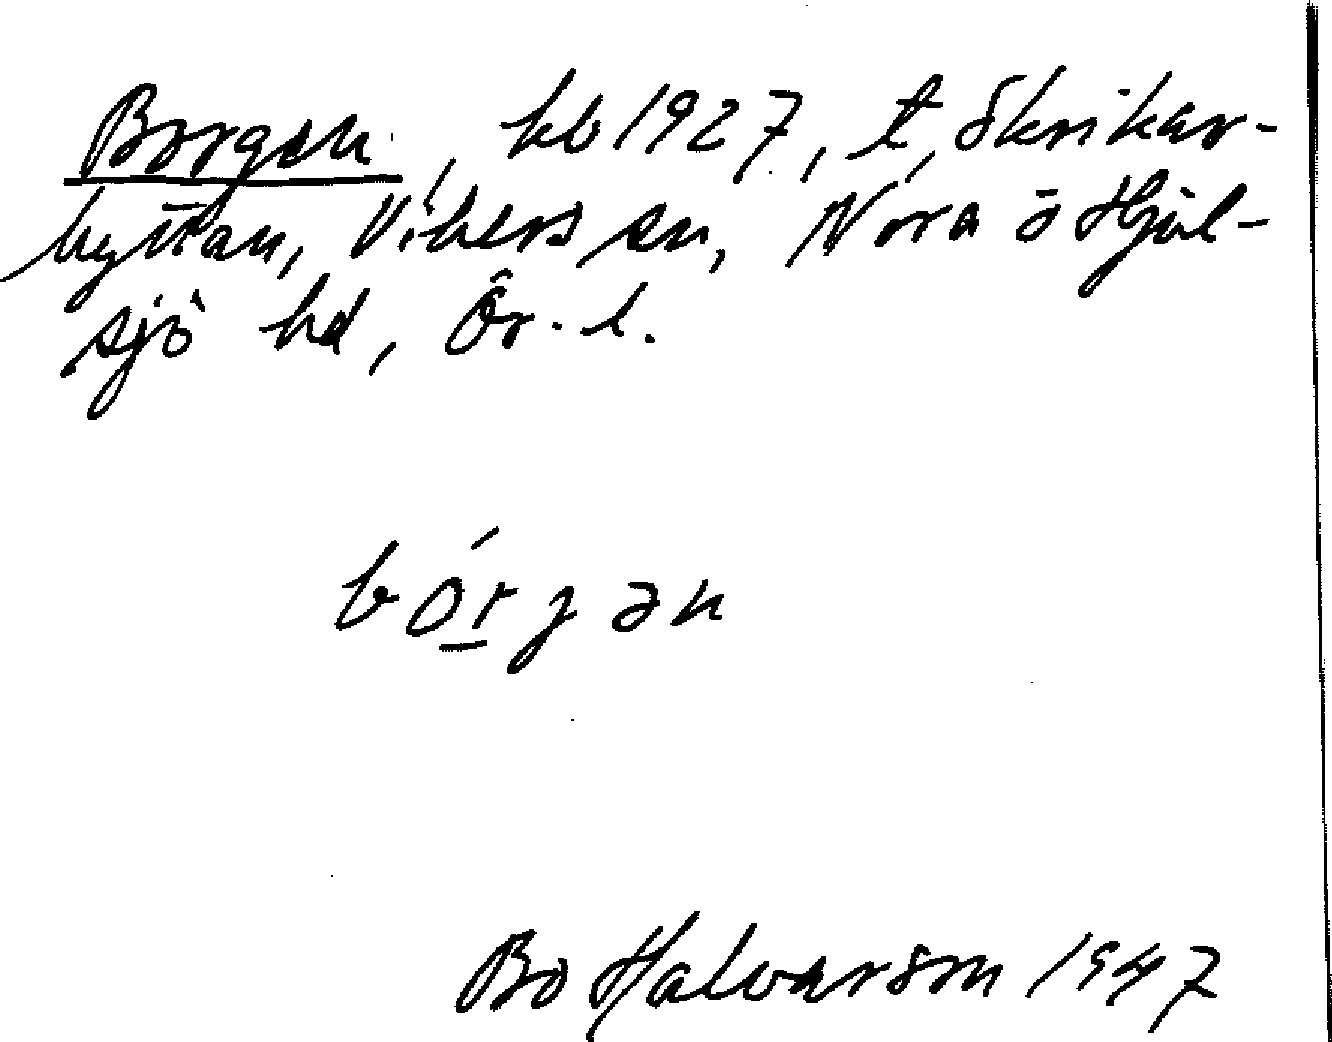 Borgen, kb 1927, t. Skrikar-
hyttan, Vikers sn, Nora o Hjul-
sjö hd, Ör. l.
bórgən
Bo Halvarson 1947